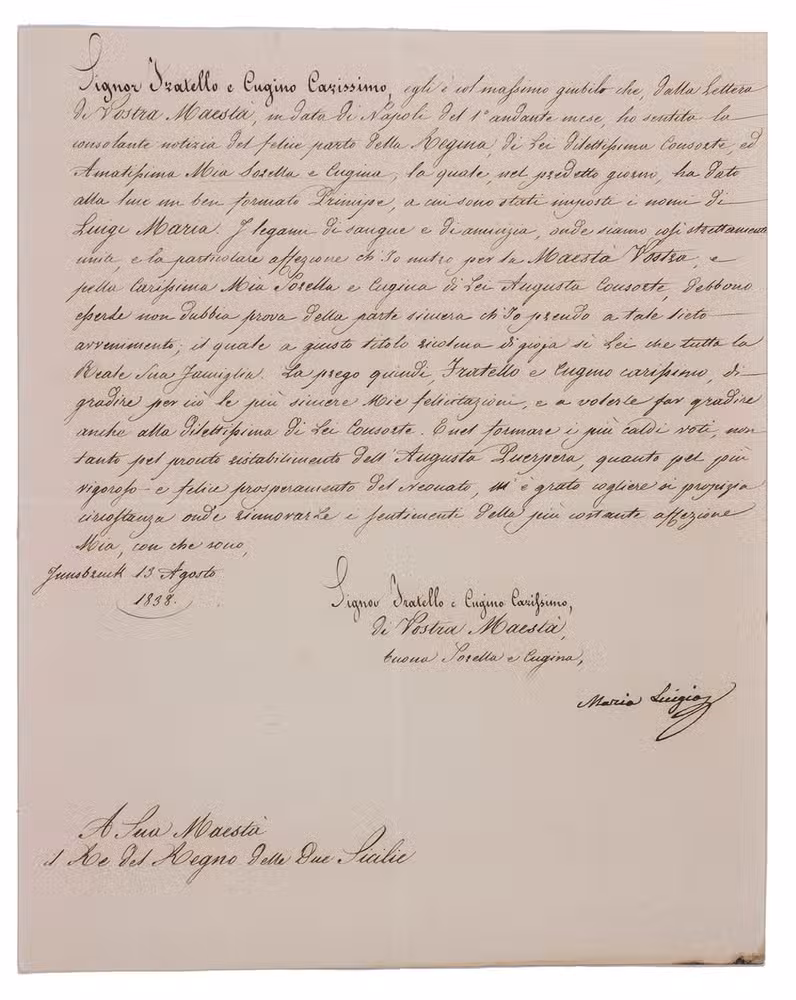 Signor Fratello e Cugino Carissimo, egli è col massimo giubilo che, dalla Lettera
di Vostra Maestà, in data di Napoli del 1° andante mese, ho sentito la
consolante notizia del felice parto della Regina, di Lei dilettissima Consorte, ed
Amatissima Mia Sorella e Cugina, la quale, nel predetto giorno, ha dato
alla luce un ben formato Principe, a cui sono stati imposti i nomi di
Luigi Maria. I legami di sangue e di amicizia, onde siamo così strettamente
uniti, e la particolare affezione ch'Io nutro per la Maestà Vostra, e
pella Carissima Mia Sorella e Cugina di Lei Augusta Consorte, debbono
esserLe non dubbia prova della parte sincera ch'Io prendo a tale lieto
avvenimento; il quale a giusto titolo ricolma di gioja sì Lei che tutta la
Reale Sua Famiglia. La prego quindi, Fratello e Cugino carissimo, di
gradire per ciò le più sincere Mie felicitazioni, e a volerle far gradire
anche alla dilettissima di Lei Consorte. E nel formare i più caldi voti, non
tanto pel pronto ristabilimento dell'Augusta Puerpera, quanto pel più
vigoroso e felice prosperamento del Neonato, m'è grato cogliere sì propizia
circostanza onde rinnovarLe i sentimenti della più costante affezione
Mia, con che sono,
Innsbruck 13 Agosto
1838.
Signor Fratello e Cugino Carissimo,
di Vostra Maestà,
buona Sorella e Cugina,
Maria Luigia
A Sua Maestà
il Re del Regno delle Due Sicilie